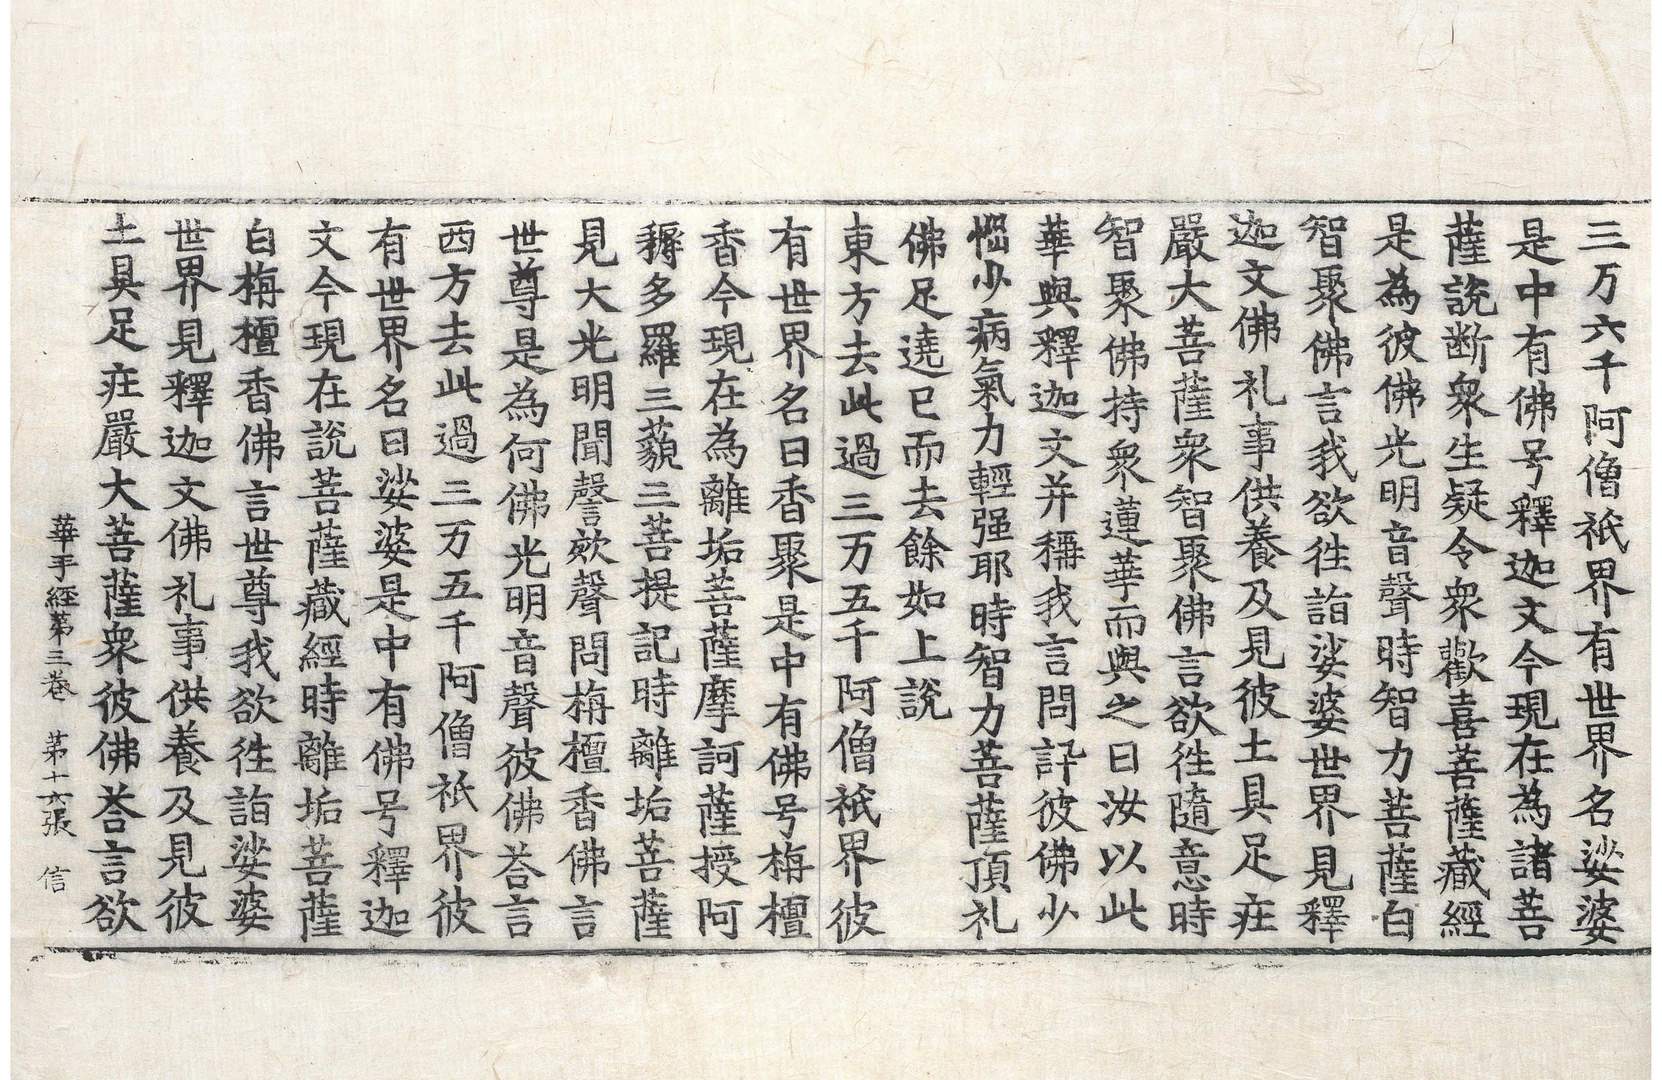 三万六千阿僧祇界有世界名娑婆
是中有佛号釋迦文今現在為諸菩
薩說断衆生疑令衆歡喜菩薩藏經
是為彼佛光明音聲時智力菩薩白
智聚佛言我欲徃詣娑婆世界見釋
迦文佛礼事供養及見彼土具足庄
嚴大菩薩衆智聚佛言欲徃隨意時
智聚佛持衆蓮華而與之曰汝以此
華與釋迦文并稱我言問訊彼佛少
惱少病氣力輕强耶時智力菩薩頂礼
佛足遶已而去餘如上說
東方去此過三万五千阿僧祇界彼
有世界名曰香聚是中有佛号栴檀
香今現在為離垢菩薩摩訶薩授阿
耨多羅三藐三菩提記時離垢菩薩
見大光明聞謦欬聲問栴檀香佛言
世尊是為何佛光明音聲彼佛荅言
西方去此過三万五千阿僧祇界彼
有世界名曰娑婆是中有佛号釋迦
文今現在說菩薩藏經時離垢菩薩
白栴檀香佛言世尊我欲徃詣娑婆
世界見釋迦文佛礼事供養及見彼
土具足庄嚴大菩薩衆彼佛荅言欲
華手經第三卷 第十六張 信